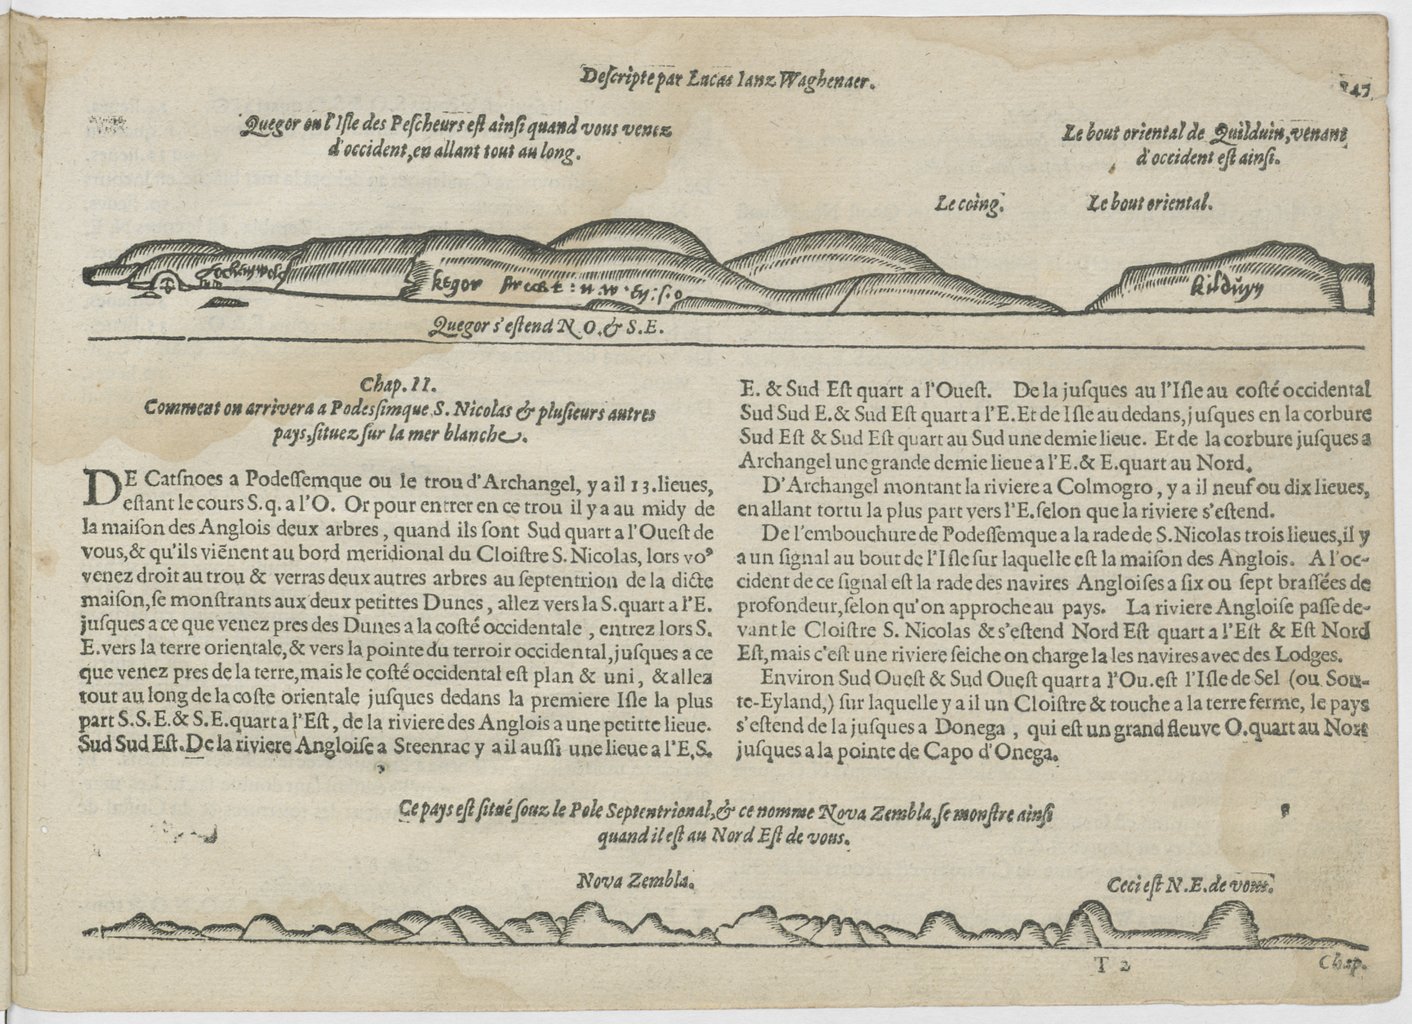 Descripte par Lucas Ianz Waghenaer.
247
Quegor ou l'Isle des Pescheurs est ainsi quand vous venez
d'occident, en allant tout au long.
Le bout oriental de Quilduin, venant
d'occident est ainsi.
Le coing.
Le bout oriental.
kegor
kilduyn
Quegor s'estend N. O. & S. E.
Chap. II.
Comment on arrivera a Podessimque S. Nicolas & plusieurs autres
pays, situez sur la mer blanche.
DE Catsnoes a Podessemque ou le trou d'Archangel, y a il 13. lieues,
estant le cours S. q. a l'O. Or pour entrer en ce trou il y a au midy de
la maison des Anglois deux arbres, quand ils sont Sud quart a l'Ouest de
vous, & qu'ils viẽnent au bord meridional du Cloistre S. Nicolas, lors voꝰ
venez droit au trou & verras deux autres arbres au septentrion de la dicte
maison, se monstrants aux deux petittes Dunes, allez vers la S. quart a l'E.
jusques a ce que venez pres des Dunes a la costé occidentale, entrez lors S.
E. vers la terre orientale, & vers la pointe du terroir occidental, jusques a ce
que venez pres de la terre, mais le costé occidental est plan & uni, & allez
tout au long de la coste orientale jusques dedans la premiere Isle la plus
part S. S. E. & S. E. quart a l'Est, de la riviere des Anglois a une petitte lieue.
Sud Sud Est. De la riviere Angloise a Steenrac y a il aussi une lieue a l'E, S.
E. & Sud Est quart a l'Ouest. De la jusques au l'Isle au costé occidental
Sud Sud E. & Sud Est quart a l'E. Et de l Isle au dedans, jusques en la corbure
Sud Est & Sud Est quart au Sud une demie lieue. Et de la corbure jusques a
Archangel une grande demie lieue a l'E. & E. quart au Nord.
D'Archangel montant la riviere a Colmogro, y a il neuf ou dix lieues,
en allant tortu la plus part vers l'E. selon que la riviere s'estend.
De l'embouchure de Podessemque a la rade de S. Nicolas trois lieues, il y
a un signal au bout de l'Isle sur laquelle est la maison des Anglois. A l'oc-
cident de ce signal est la rade des navires Angloises a six ou sept brassées de
profondeur, selon qu'on approche au pays. La riviere Angloise passe de-
vant le Cloistre S. Nicolas & s'estend Nord Est quart a l'Est & Est Nord
Est, mais c'est une riviere seiche on charge la les navires avec des Lodges.
Environ Sud Ouest & Sud Ouest quart a l'Ou. est l'Isle de Sel (ou Sou-
te-Eyland,) sur laquelle y a il un Cloistre & touche a la terre ferme, le pays
s'estend de la jusques a Donega, qui est un grand fleuve O. quart au Nort
jusques a la pointe de Capo d'Onega.
Ce pays est situé souz le Pole Septentrional, & ce nomme Nova Zembla, se monstre ainsi
quand il est au Nord Est de vous.
Nova Zembla.
Ceci est N. E. de vous.
T 2
Chap.